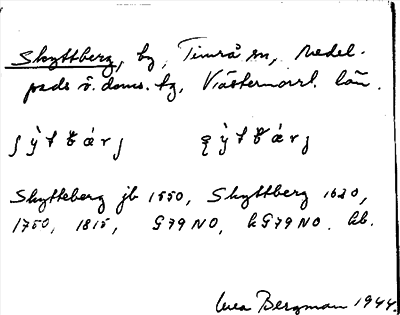 Skyttberg, by, Timrå sn, Medel-
pads ö. doms. tg, Västernorrl. län.
Skytteberg jb 1550, Skyttberg 1620,
1750, 1815, G79 NO, kG79 NO. kb.
Bergman 1944.